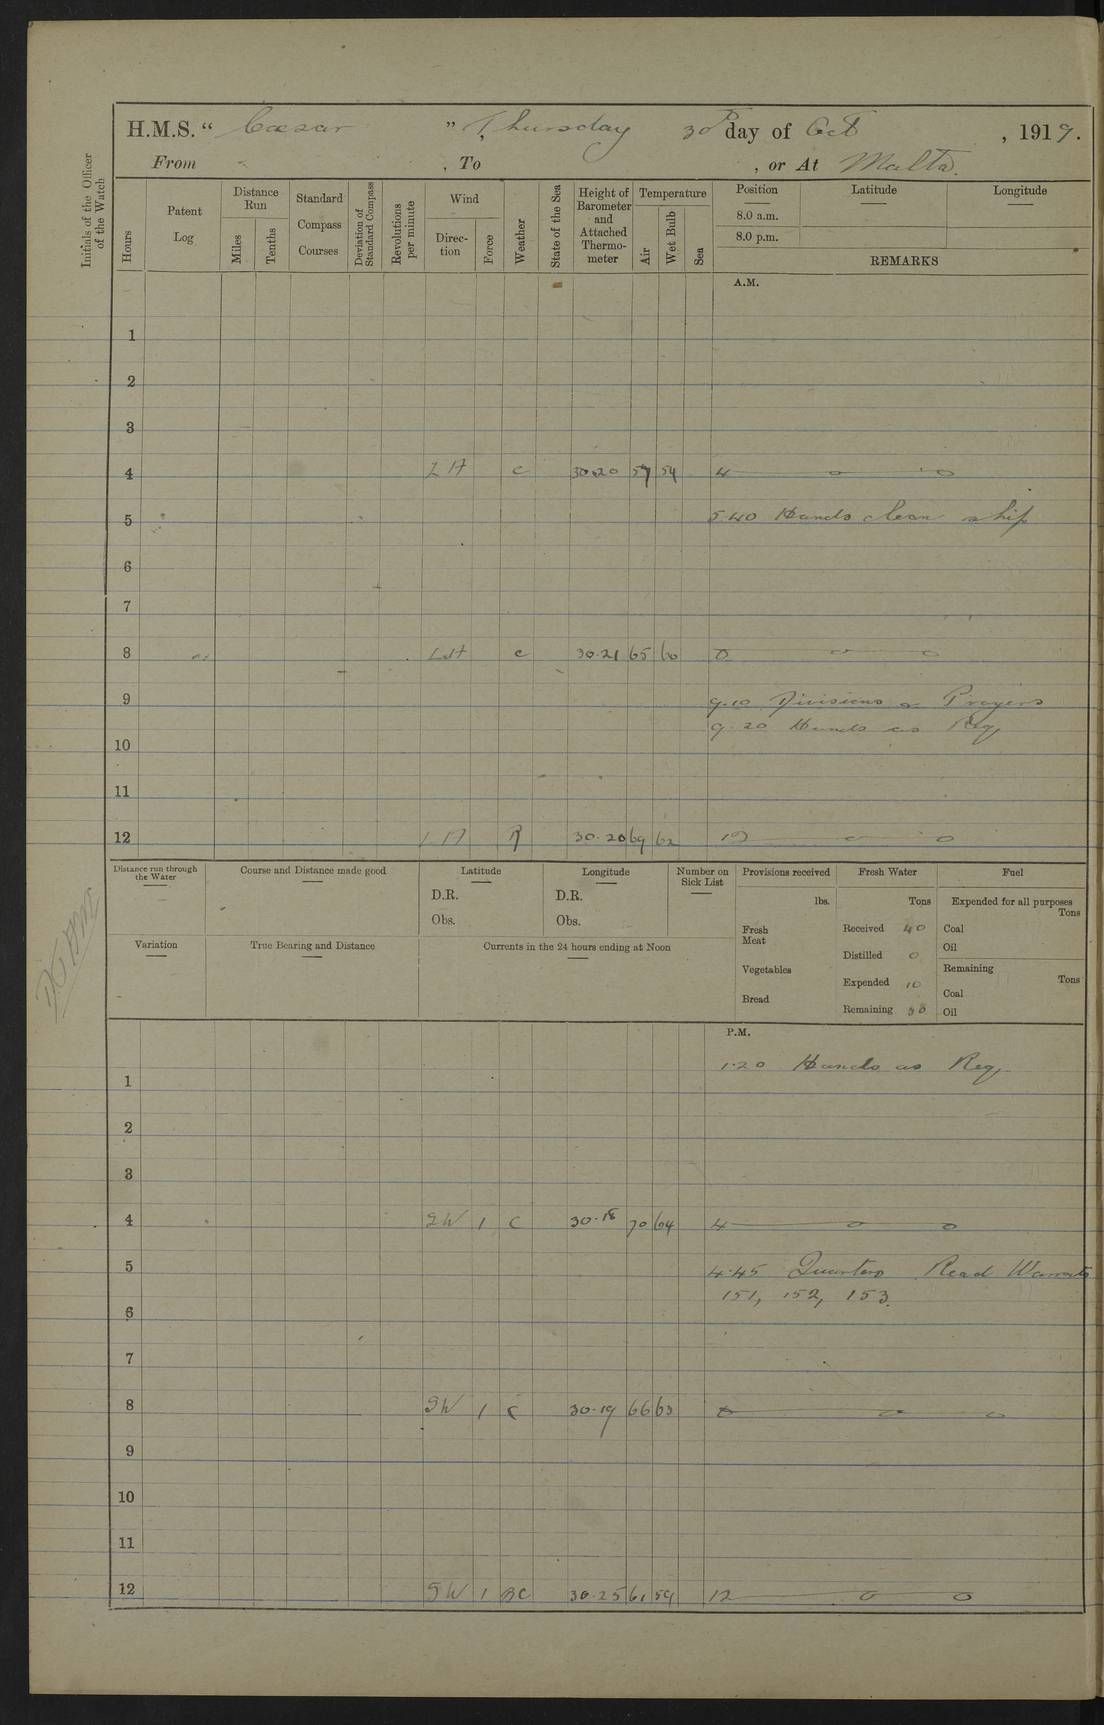 H.M.S. “ Cæsar ”, Thursday 30th day of Oct , 1919.
From , To , or At Malta.
Initials of the Officer of the Watch
Hours
Patent Log
Distance Run
Miles Tenths
Standard Compass Courses
Deviation of Standard Compass
Revolutions per minute
Wind
Direction Force
Weather
State of the Sea
Height of Barometer and Attached Thermometer
Temperature
Air Wet Bulb Sea
Position Latitude Longitude
8.0 a.m.
8.0 p.m.
REMARKS
A.M.
1
2
3
4 c 30.20 57 54 4 o o
5 5.40 Hands clean ship
6
7
8 c 30.21 65 60 8 o o
9 9.10 Divisions & Prayers
9.20 Hands as Req
10
11
12 30.20 69 62 12 o o
Distance run through the Water
Course and Distance made good
Latitude
D.R.
Obs.
Longitude
D.R.
Obs.
Number on Sick List
Provisions received
lbs.
Fresh Meat
Vegetables
Bread
Fresh Water
Tons
Received 40
Distilled 0
Expended 10
Remaining 30
Fuel
Expended for all purposes
Tons
Coal
Oil
Remaining
Tons
Coal
Oil
Variation
True Bearing and Distance
Currents in the 24 hours ending at Noon
P.M.
1.20 Hands as Req
1
2
3
4 SW 1 C 30.18 70 64 4 o o
5 4.45 Quarters Read Warrants
151, 152, 153.
6
7
8 SW 1 C 30.19 66 63 8 o o
9
10
11
12 SW 1 BC 30.25 61 59 12 o o